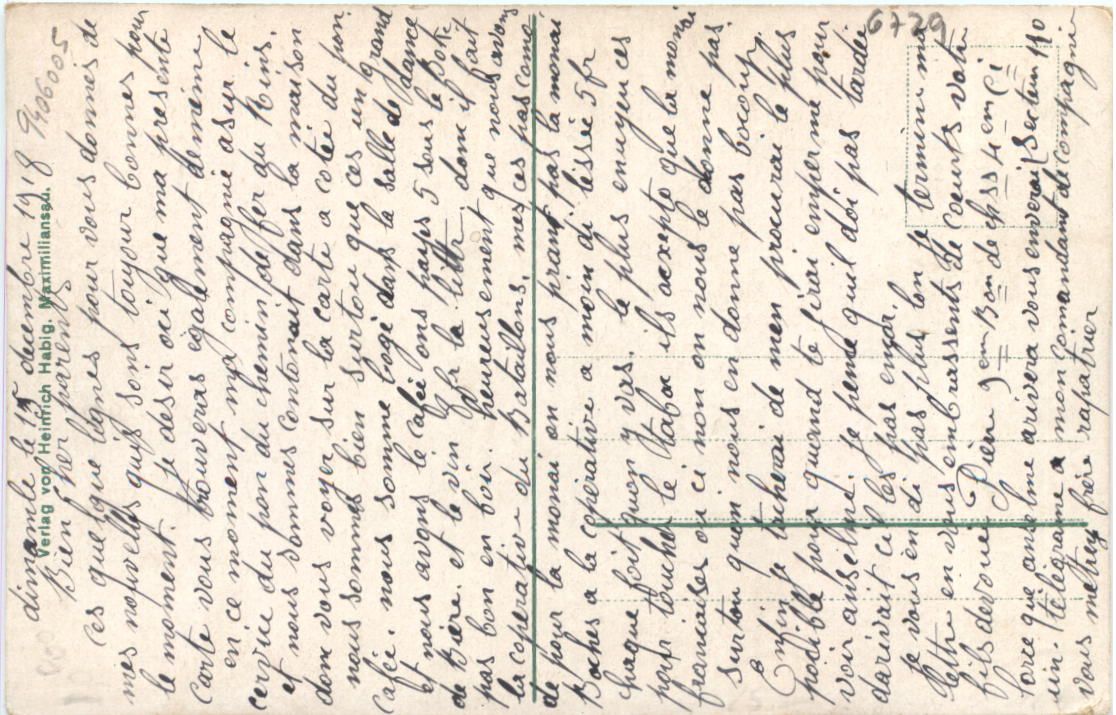 dimanche le 15 decembre 1918
Bien cher parents
Ces quelque lignes pour vous donnés de
mes nouvelles quis sons toujour bonnes pour
le moment. je désir oci que ma presente
carte vous trouveras égalements demême
en ce moment ma compagnie asur le
cervice du pon du chemin deffer du Rhins.
et nous sommes cantonait dans la maison
don vous voyer sur la carte a cotéi du pon
nous sommes bien surtou que ces un grand
cafée. nous somme logé dans la salle de dance
et nous avons le caféé ons payes 5 sous le Bote
de Bière. et le vin fr la littre dom il fait
pas bon en boir. heureusement que nous avons
la coperative du Bataillons. mes ces pas comode
de pour la monai on nous prants pas la monai
Boches a la coperative a moin di léssée 5 fr
chaque foit quon y vas. le plus enuyen ces
pour toucher le tabac ils acxepte que la monai
francaises ou ci non on nous le donne pas
surtou quon nous en donne pas bocoup.
Enfin je tacherai de men procurai le plus
posible pour quand te jirai emperme pour
voir anselme. je pense quil doi pas tardée
darivait ci les pas encor.
je vous en di pas plus lon je termin ma
lettre en vous embrassents de coeurts votre
fils devouéi
Pièrre 9em Bon de ch ss 4 em Ci
Secteur 110
lorce que anselme arivera vous enverai
un télégrame a mon comandant de compagnie
vous métrer frère rapatrier
Verlag von Heinrich Habig, Maximiliansau.
1406005
6729